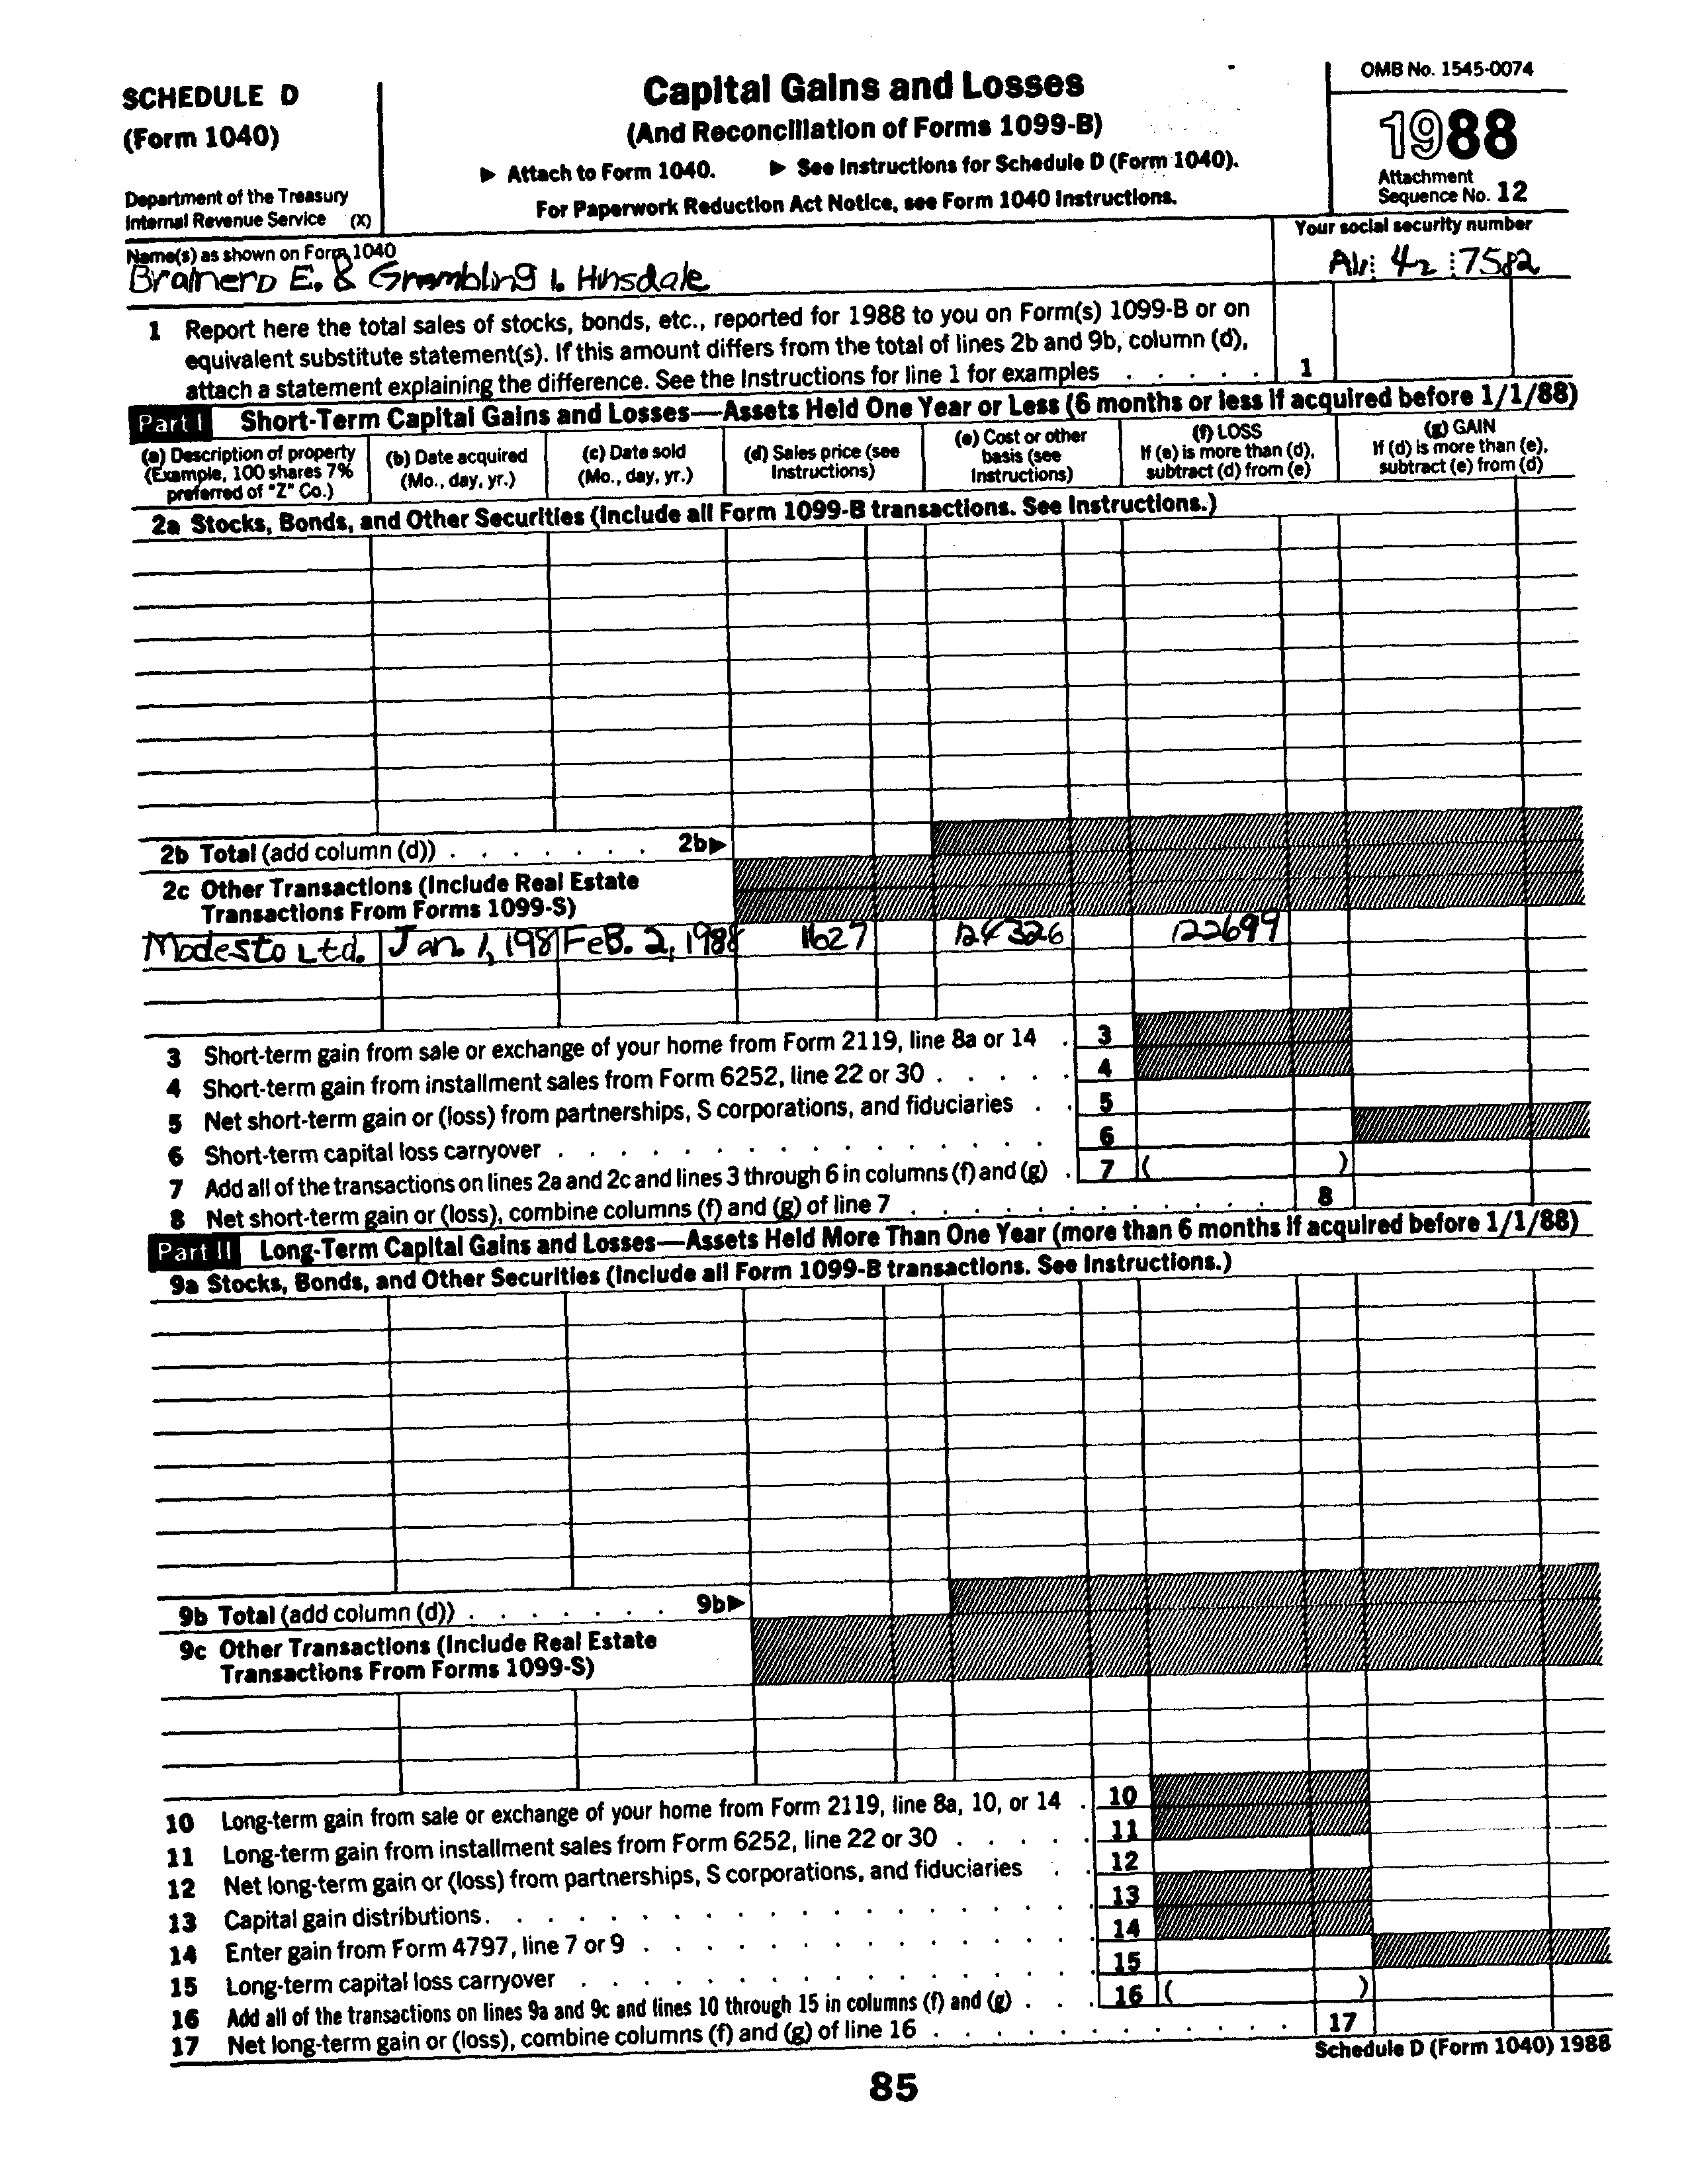 SCHEDULE D
(Form 1040)
Department of the Treasury
Internal Revenue Service (X)
Capital Gains and Losses
(And Reconciliation of Forms 1099-B)
▶ Attach to Form 1040. ▶ See Instructions for Schedule D (Form 1040).
For Paperwork Reduction Act Notice, see Form 1040 Instructions.
OMB No. 1545-0074
1988
Attachment
Sequence No. 12
Name(s) as shown on Form 1040
E. & Hinsdale
Your social security number
42 7582
1 Report here the total sales of stocks, bonds, etc., reported for 1988 to you on Form(s) 1099-B or on
equivalent substitute statement(s). If this amount differs from the total of lines 2b and 9b, column (d),
attach a statement explaining the difference. See the Instructions for line 1 for examples . . . . . 1
Part I Short-Term Capital Gains and Losses—Assets Held One Year or Less (6 months or less if acquired before 1/1/88)
(a) Description of property
(Example, 100 shares 7%
preferred of "Z" Co.)
(b) Date acquired
(Mo., day, yr.)
(c) Date sold
(Mo., day, yr.)
(d) Sales price (see
Instructions)
(e) Cost or other
basis (see
Instructions)
(f) LOSS
If (e) is more than (d),
subtract (d) from (e)
(g) GAIN
If (d) is more than (e),
subtract (e) from (d)
2a Stocks, Bonds, and Other Securities (Include all Form 1099-B transactions. See Instructions.)
2b Total (add column (d)) . . . . . . . 2b▶
2c Other Transactions (Include Real Estate
Transactions From Forms 1099-S)
Modesto Ltd. Jan. 1, 198 FeB. 2, 1988 1627 124326 122699
3 Short-term gain from sale or exchange of your home from Form 2119, line 8a or 14 . 3
4 Short-term gain from installment sales from Form 6252, line 22 or 30 . . . . . 4
5 Net short-term gain or (loss) from partnerships, S corporations, and fiduciaries . . 5
6 Short-term capital loss carryover . . . . . . . . . . . . . . 6
7 Add all of the transactions on lines 2a and 2c and lines 3 through 6 in columns (f) and (g) . 7 ( )
8 Net short-term gain or (loss), combine columns (f) and (g) of line 7 . . . . . . . . . . 8
Part II Long-Term Capital Gains and Losses—Assets Held More Than One Year (more than 6 months if acquired before 1/1/88)
9a Stocks, Bonds, and Other Securities (Include all Form 1099-B transactions. See Instructions.)
9b Total (add column (d)) . . . . . . . 9b▶
9c Other Transactions (Include Real Estate
Transactions From Forms 1099-S)
10 Long-term gain from sale or exchange of your home from Form 2119, line 8a, 10, or 14 . 10
11 Long-term gain from installment sales from Form 6252, line 22 or 30 . . . . . 11
12 Net long-term gain or (loss) from partnerships, S corporations, and fiduciaries . . 12
13 Capital gain distributions. . . . . . . . . . . . . . . . . 13
14 Enter gain from Form 4797, line 7 or 9 . . . . . . . . . . . . 14
15 Long-term capital loss carryover . . . . . . . . . . . . . . 15
16 Add all of the transactions on lines 9a and 9c and lines 10 through 15 in columns (f) and (g) . . . 16 ( )
17 Net long-term gain or (loss), combine columns (f) and (g) of line 16 . . . . . . . . . . 17
Schedule D (Form 1040) 1988
85